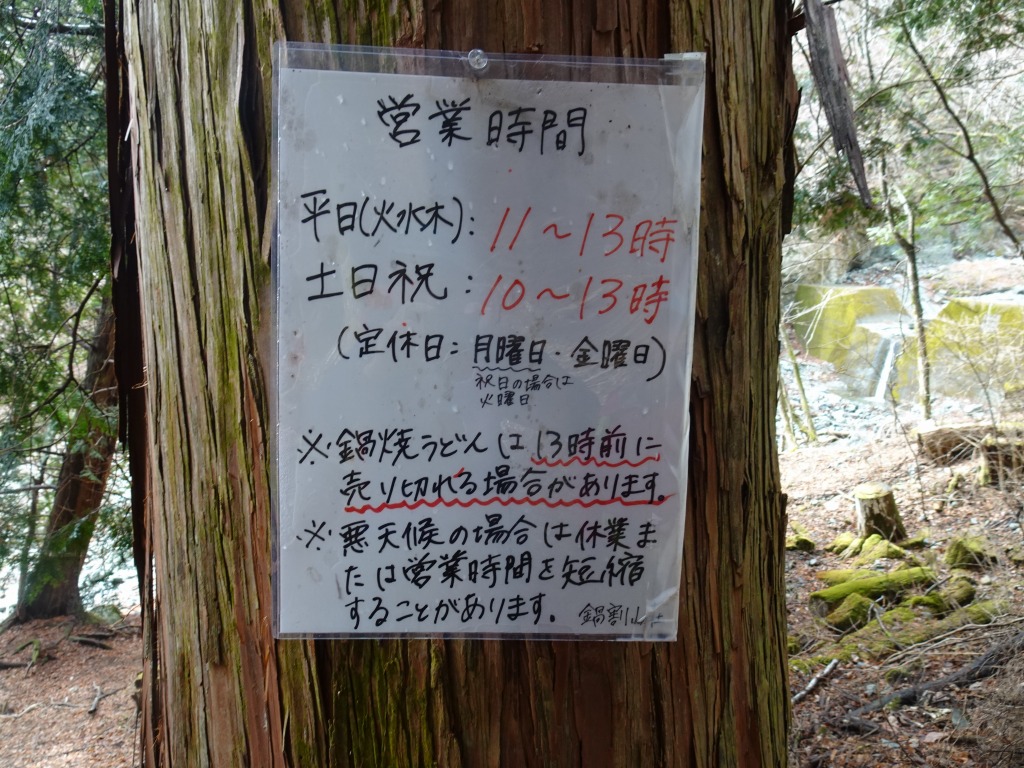 営業時間
平日(火水木): 11～13時
土日祝 : 10～13時
(定休日: 月曜日・金曜日)
祝日の場合は
火曜日
※・鍋焼うどんは13時前に
売り切れる場合があります。
※・悪天候の場合は休業ま
たは営業時間を短縮
することがあります。
鍋割山